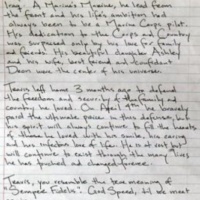 Iraq. A Marine's Marine, he lead from
the front and his life's ambition had
always been to be a Marine Corps pilot.
His dedication to the Corps and Country
was surpassed only by his love for family
and friends. His beautiful daughter Ashley
and his wife, best friend and confidant
Dawn were the center of his universe.
Travis left home 3 months ago to defend
the freedom and security of the family and
country he loved. On April 7th he
paid the ultimate price in this defense, but
his spirit will always continue to fill the hearts
of whom he loved with his smile, his caring
and his infectious love of life. He is not lost but
will continue to exist through the many lives
he has touched and changed forever.
Travis, you resemble the true meaning of
"Semper Fidelis". God Speed, til we meet